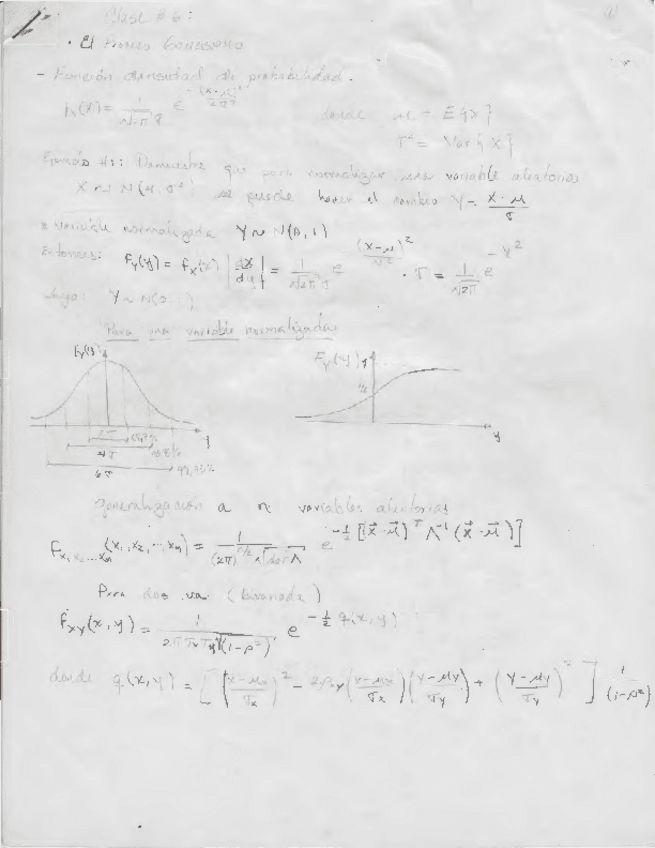 Clase # 6:
• El Proceso Gaussiano
- Función densidad de probabilidad.
fx(x) = 1/√2π σ e^-(x-μ)²/2σ² donde μ = E{X}
σ² = Var{X}
Demuestre que para normalizar una variable aleatoria
X ~ N(μ, σ²) se puede hacer el cambio Y = X-μ/σ
variable normalizada Y ~ N(0,1)
Entonces: Fy(y) = fx(x) |dx/dy| = 1/√2π σ e (x-μ)²/σ² · σ = 1/√2π e^-y²
Luego: Y ~ N(0
Para una variable normalizada
Fy(y) Fy(y) 1
½
y y
2σ
4σ
6σ
generalización a n variables aleatorias
F x1,x2...xn (x1, x2, ..., xn) = 1/(2π)^n/2 √det Λ e^-½[(x⃗-μ⃗)^T Λ^-1 (x⃗-μ⃗)]
Para dos va (bivariada)
Fxy(x,y) = 1/2π σx σy √(1-ρ²) e^-½ q(x,y)
donde q(x,y) = [(x-μx/σx)² - 2ρxy (x-μx/σx)(y-μy/σy) + (y-μy/σy)²] 1/(1-ρ²)